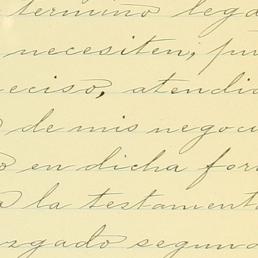 termino lega
necesiten, pu
eciso, atendi
de mis negoci
o en dicha for
a la testament
uzgado segund